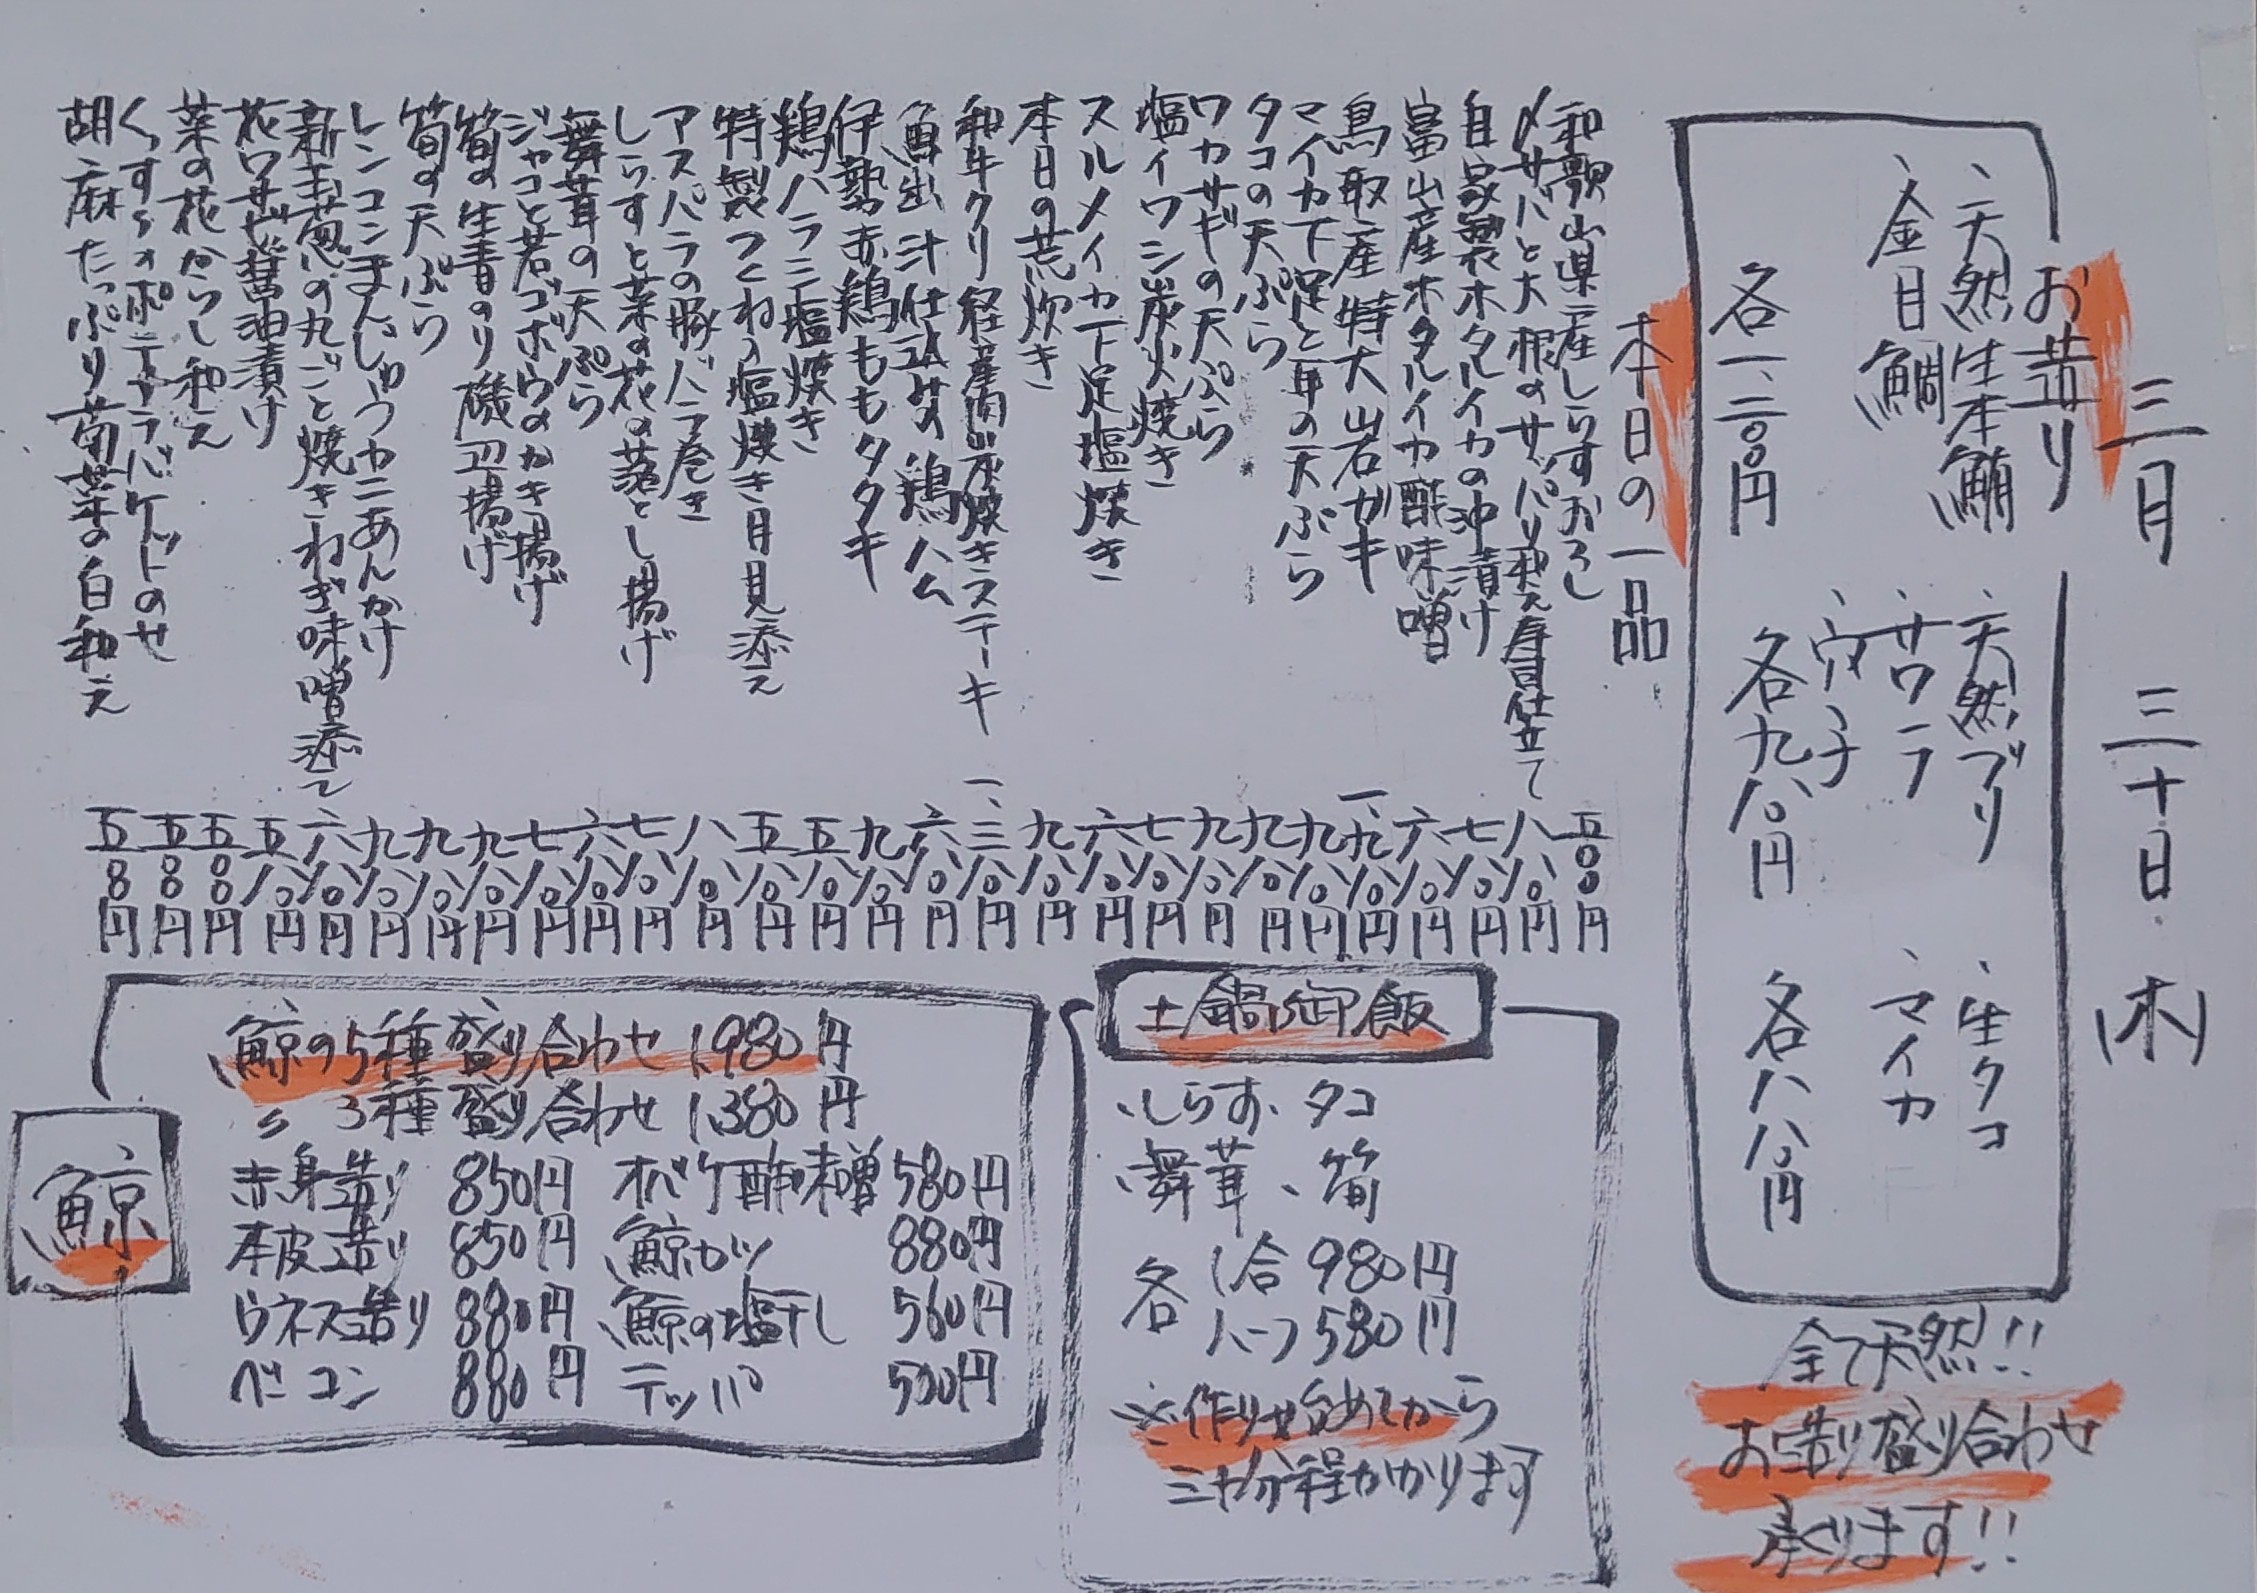 三月三十日(木)
お造り
、天然生本鮪
、金目鯛
各一、二〇〇円
、天然ブリ
、サワラ
、穴子
各九八〇円
、生タコ
、マイカ
各八八〇円
全て天然!!
お造り盛り合わせ
承ります!!
本日の一品
和歌山県産しらすおろし 五〇〇円
〆サバと大根のサッパリ和え寿司仕立て 八八〇円
自家製ホタルイカの沖漬け 七八〇円
富山産ホタルイカ酢味噌 六八〇円
鳥取産特大岩ガキ 一、九八〇円
マイカ下足と の天ぷら 九八〇円
タコの天ぷら 九八〇円
ワカサギの天ぷら 九八〇円
塩イワシ炭火焼き 七八〇円
スルメイカ下足塩焼き 六八〇円
本日の荒炊き 九八〇円
和牛クリ経産肉炭焼きステーキ 一、三八〇円
魚出汁仕込みの鶏ハム 六八〇円
伊勢赤鶏ももタタキ 九八〇円
鶏ハラミ塩焼き 五八〇円
特製つくねの塩焼き月見添え 五八〇円
アスパラの豚バラ巻き 八八〇円
しらすと菜の花の落とし揚げ 七八〇円
舞茸の天ぷら 六八〇円
ジャコと若ゴボウのかき揚げ 七八〇円
筍の生青のり磯辺揚げ 九八〇円
筍の天ぷら 九八〇円
レンコンまんじゅうカニあんかけ 九八〇円
新玉葱の丸ごと焼きねぎ味噌添て 六八〇円
花ワサビ醤油漬け 五八〇円
菜の花からし和え 五〇〇円
くんすモポテサラバケットのせ 五〇〇円
胡麻たっぷり菊菜の白和え 五〇〇円
土鍋御飯
、しらす、タコ
、舞茸、筍
各 1合 980円
ハーフ 580円
※作りせ始めてから
三十分程かかります
鯨
、鯨の5種盛り合わせ 1,980円
〃 3種盛り合わせ 1,380円
赤身造り 850円 オバケ酢味噌 580円
本皮造り 850円 鯨カツ 880円
ウネス造り 880円 鯨の塩干し 560円
ベーコン 880円 テッパ 500円